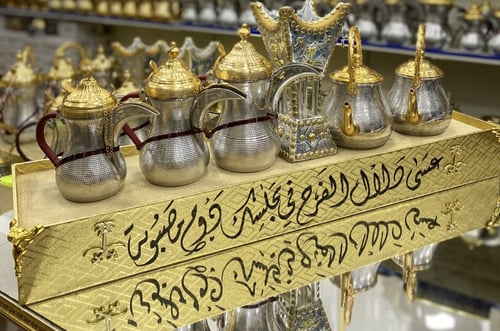 عسى دلال الفرح في مجلسك دوم مصبوبه